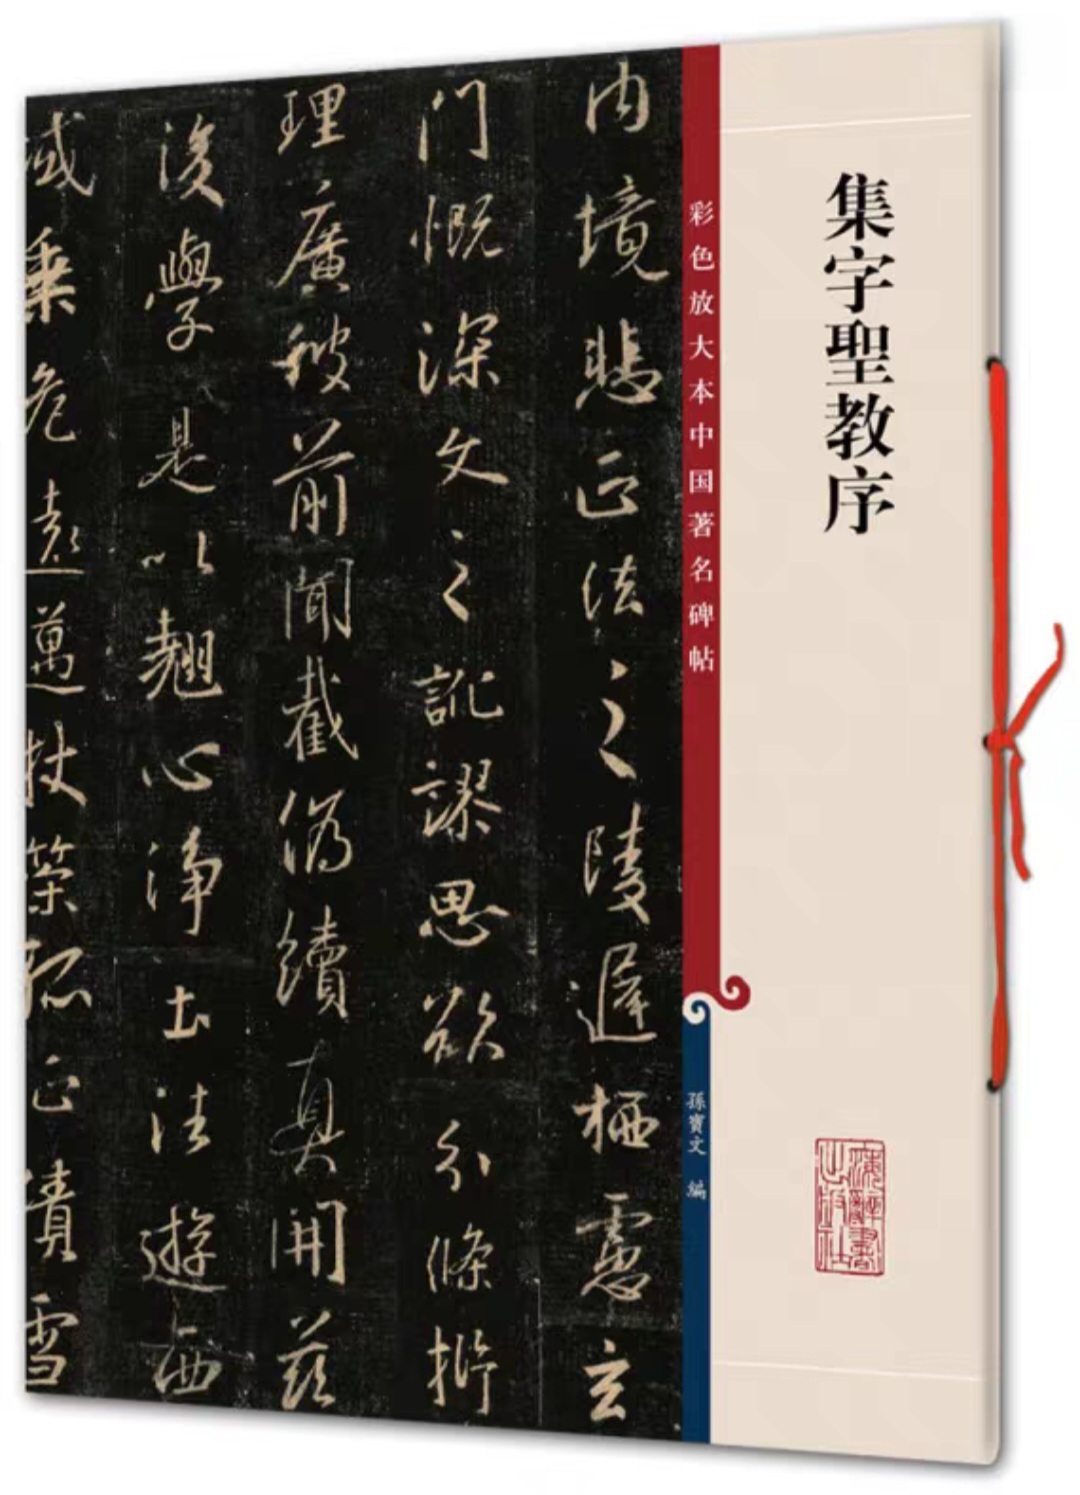 集字聖教序
彩色放大本中国著名碑帖
孫寶文 編
上海辭書
出版社
内境悲正法之陵遲栖慮玄
門慨深文之訛謬思欲分條析
理廣彼前聞截偽續真開茲
後學是以翹心淨土法遊西
域乘危遠邁杖策孤征積雪